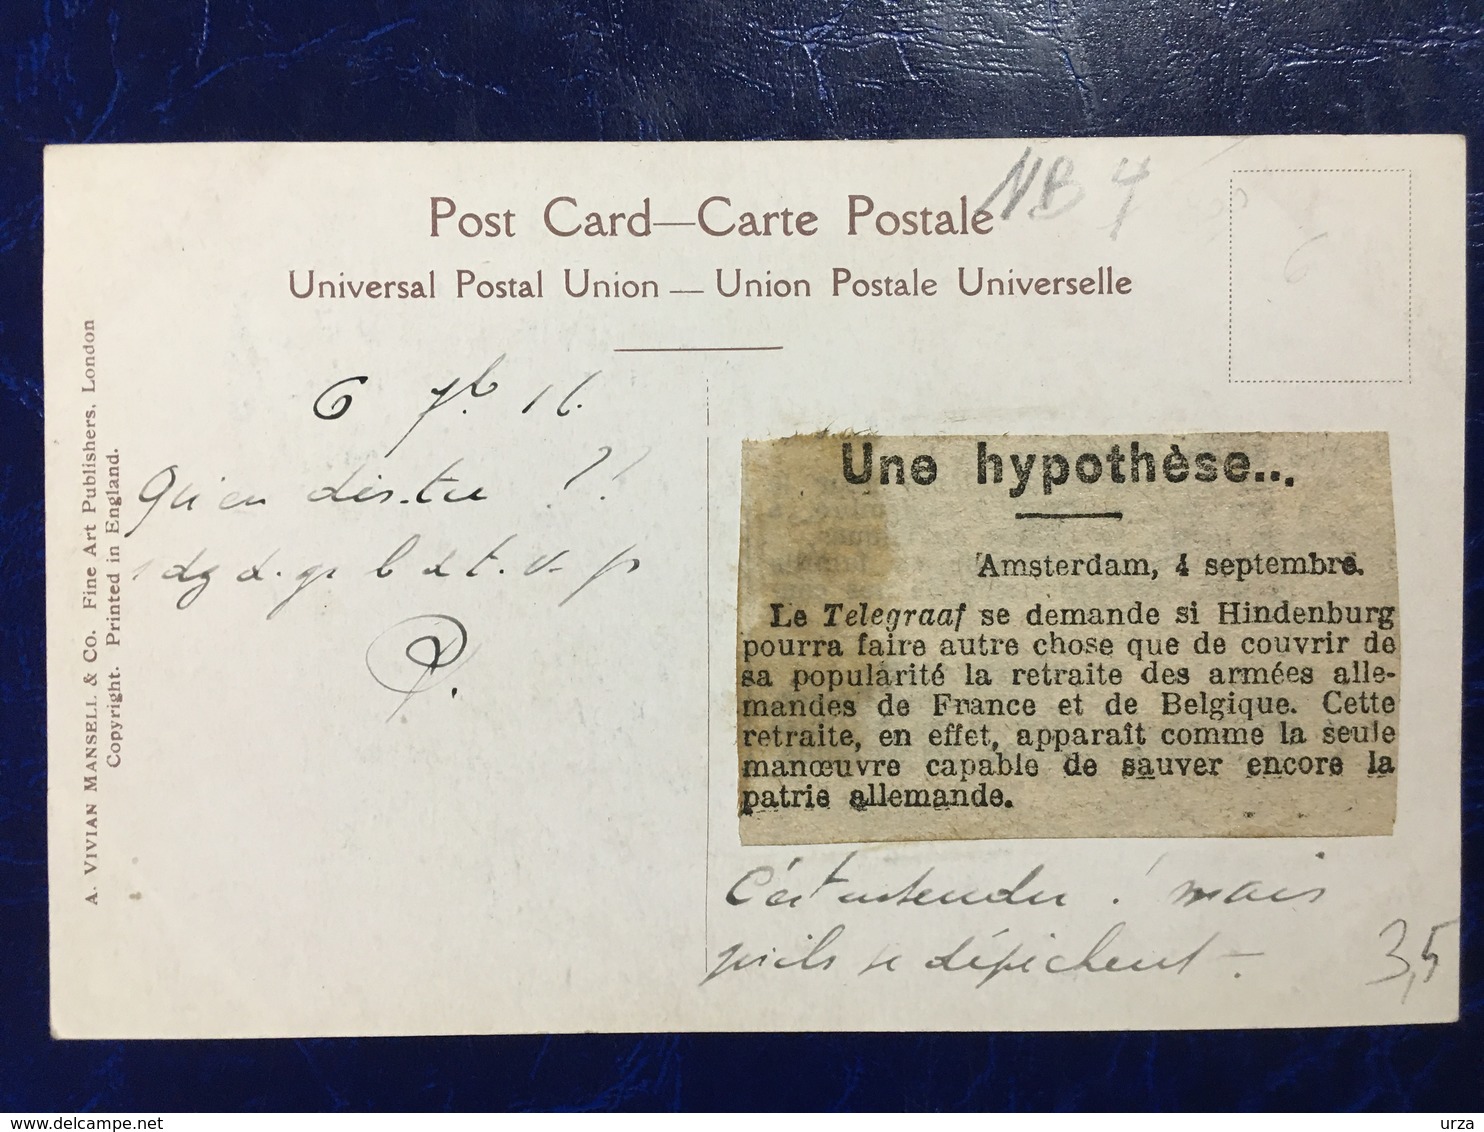 NB 4
Post Card—Carte Postale
Universal Postal Union — Union Postale Universelle
A. VIVIAN MANSELL & CO. Fine Art Publishers, London
Copyright. Printed in England.
6 16.
Qu'en dis-tu ?!
Une hypothèse...
Amsterdam, 4 septembre.
Le Telegraaf se demande si Hindenburg
pourra faire autre chose que de couvrir de
sa popularité la retraite des armées alle-
mandes de France et de Belgique. Cette
retraite, en effet, apparaît comme la seule
manœuvre capable de sauver encore la
patrie allemande.
C'est entendu ! mais
qu'ils se dépêchent -
3,5
urza